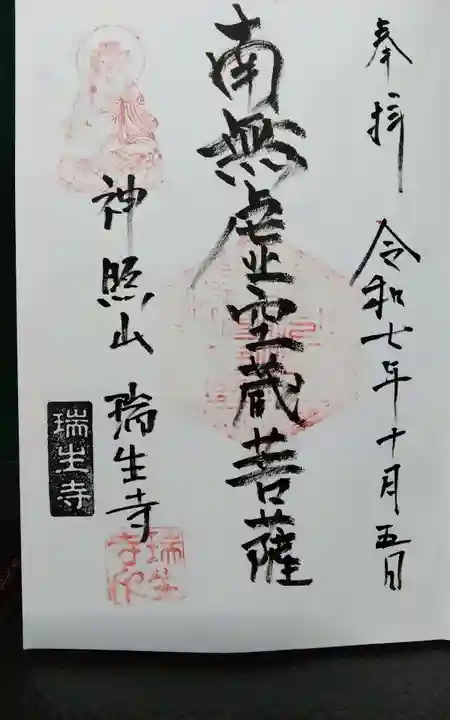 奉拝 令和七年十月五日
南無虚空蔵菩薩
神照山 瑞生寺
瑞生寺
瑞生寺印